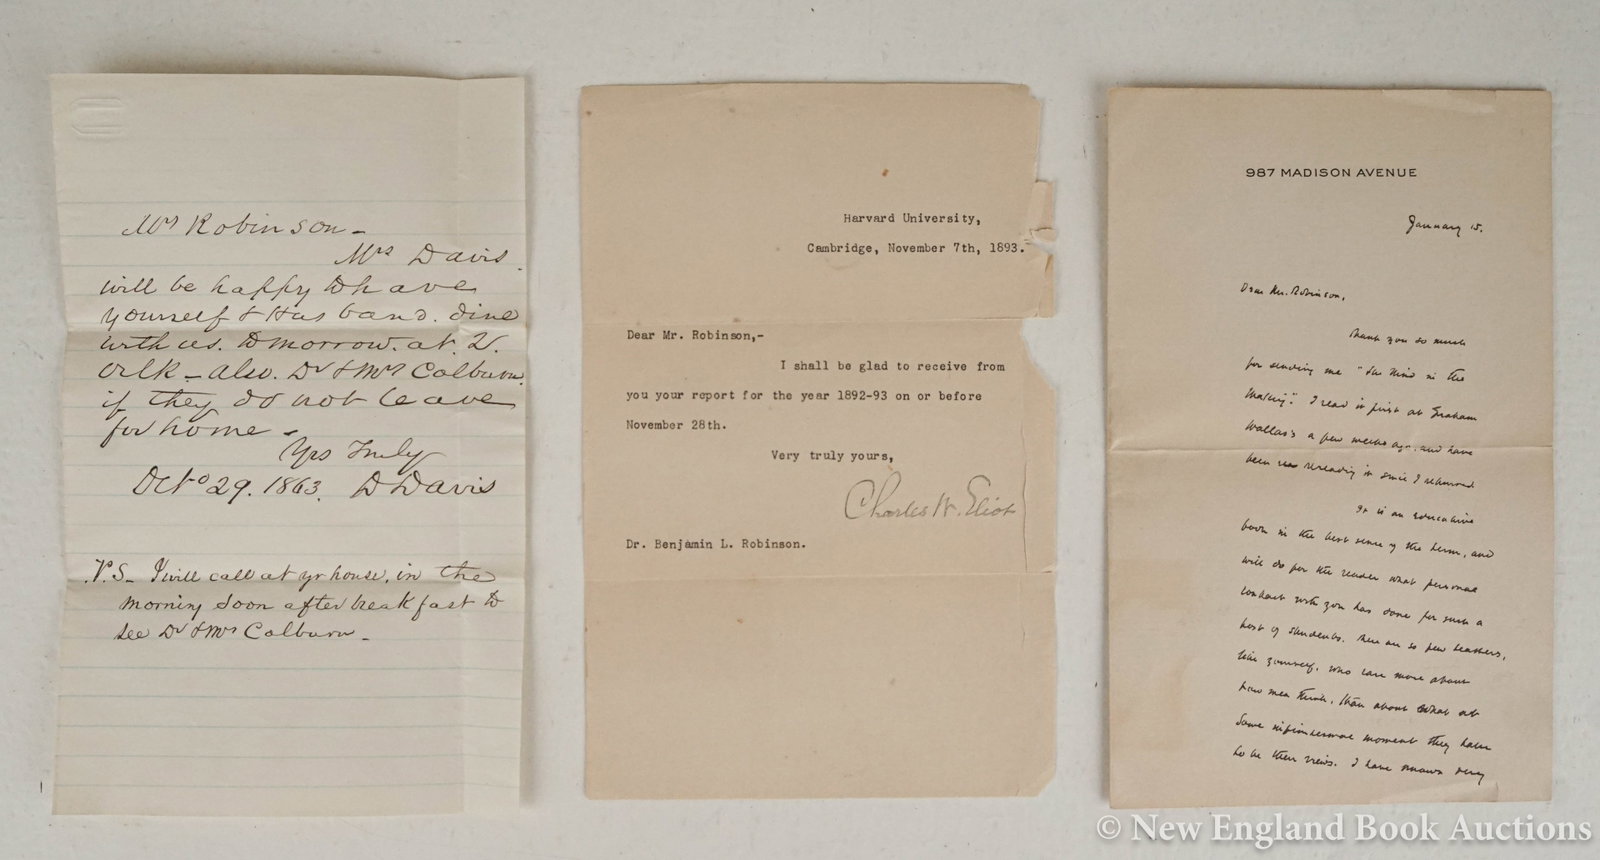 Mrs Robinson –
Mrs Davis.
will be happy to have
yourself & Husband. dine
with us. tomorrow. at 2.
Oclk – also. Dr & Mrs Colburn.
if they do not leave
for home –
Yrs Truly
Octo 29. 1863. D Davis
P.S – I will call at yr house, in the
morning soon after breakfast to
see Dr & Mrs Colburn –
Harvard University,
Cambridge, November 7th, 1893.
Dear Mr. Robinson,-
I shall be glad to receive from
you your report for the year 1892-93 on or before
November 28th.
Very truly yours,
Charles W. Eliot
Dr. Benjamin L. Robinson.
987 MADISON AVENUE
January 15.
Dear Mr. Robinson,
Thank you so much
for sending me "The Mind in the
Making". I read it first at Graham
Wallas's a few weeks ago, and have
been rereading it since I returned
It is an educative
book in the best sense of the term, and
will do for the reader what personal
contact with you has done for such a
host of students. There are so few teachers,
like yourself, who care more about
how men think, than about what at
some infinitesimal moment they have
to be their views. I have known very
© New England Book Auctions